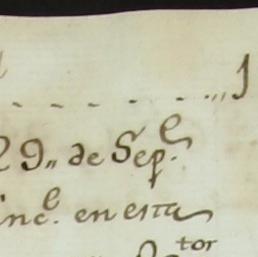 1
29,, de Sep.e
inc.l en esta
tor